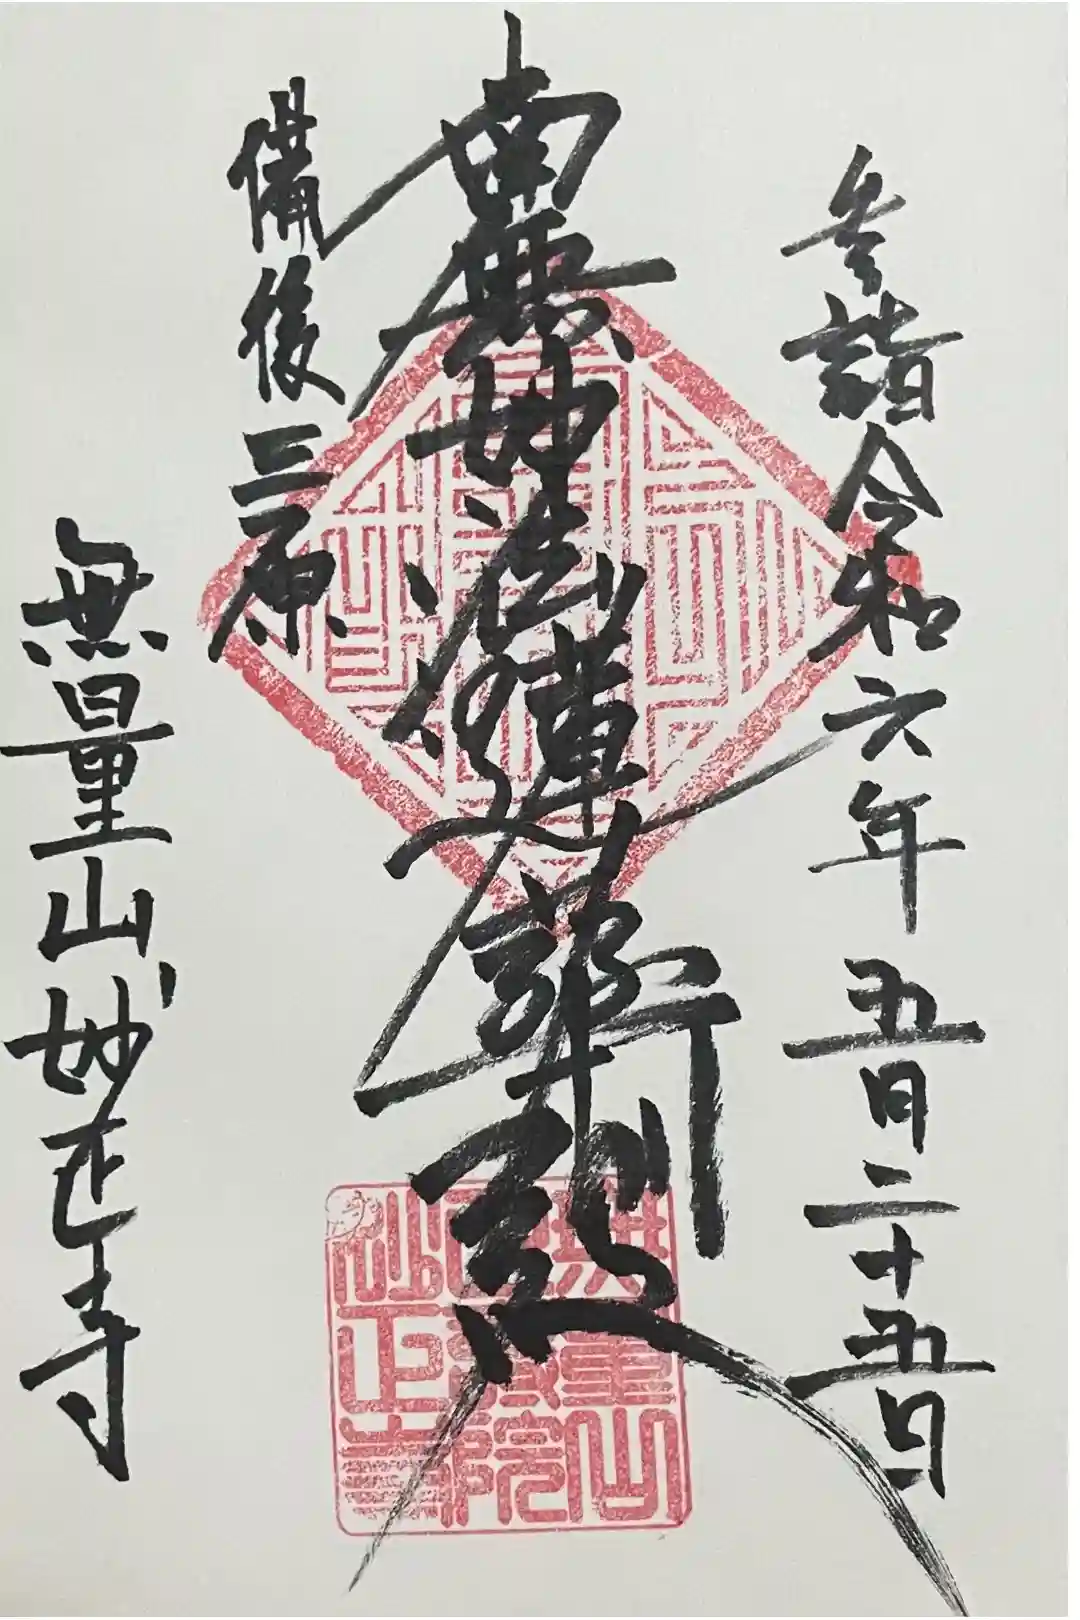 参詣令和六年五月二十五日
南無妙法蓮華経
備後三原
無量山妙正寺